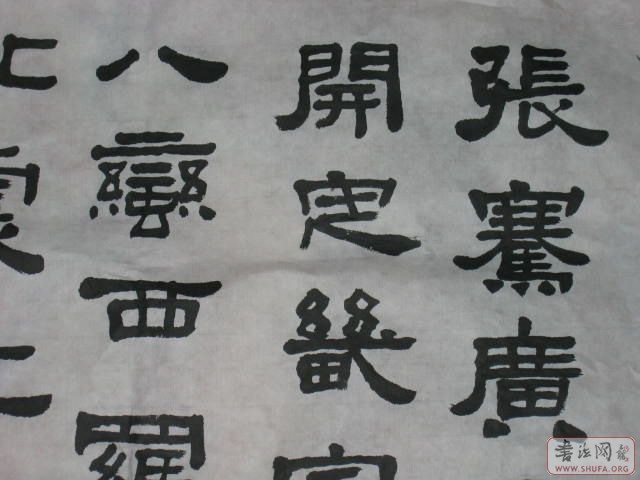 張騫廣
開定畿
八蠻西羅
書法网
WWW.SHUFA.ORG